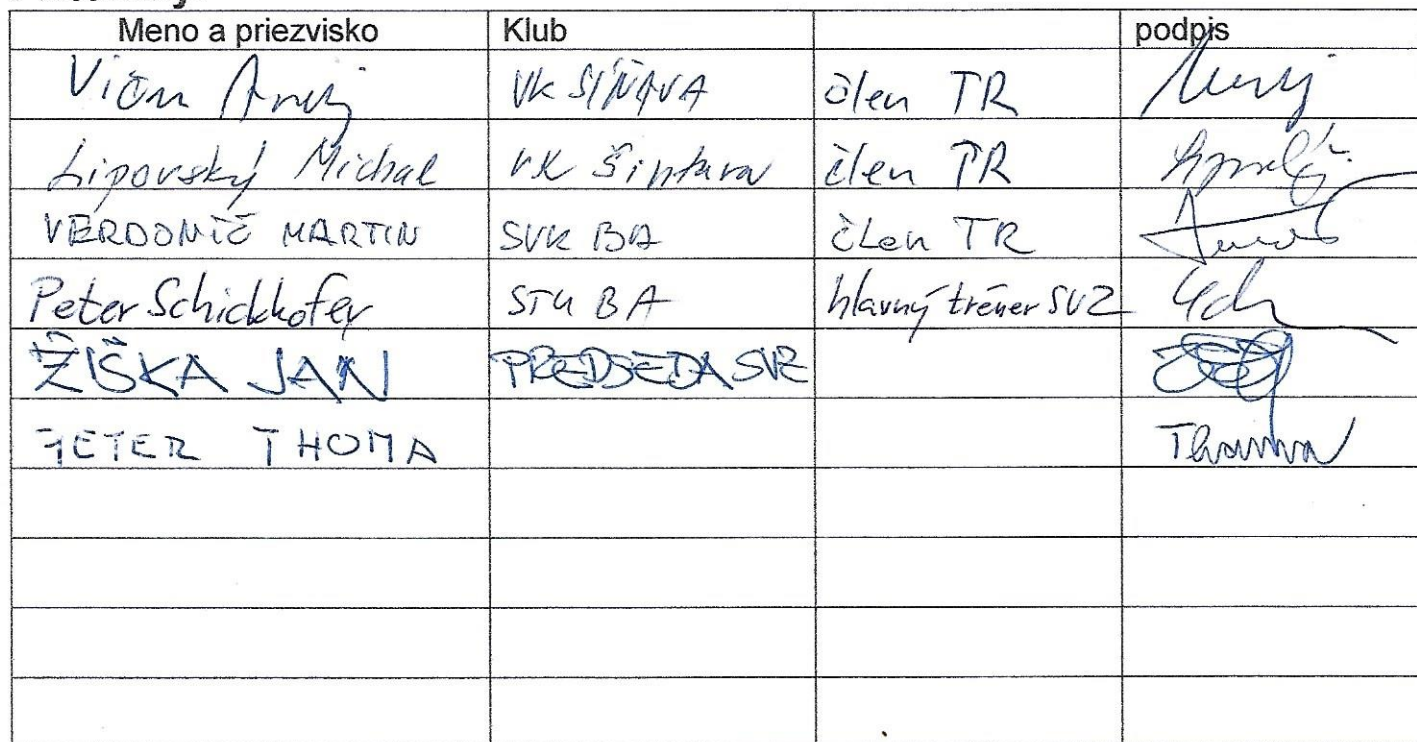 Meno a priezvisko Klub podpis
Vičan Andrej VK SĹŇAVA člen TR
Lipovský Michal VK Sĺňava člen TR
VERDONIČ MARTIN SVK BA člen TR
Peter Schickhofer STU BA hlavný tréner SVZ
ŽIŠKA JAN PREDSEDA SVZ
PETER THOMA Thoma